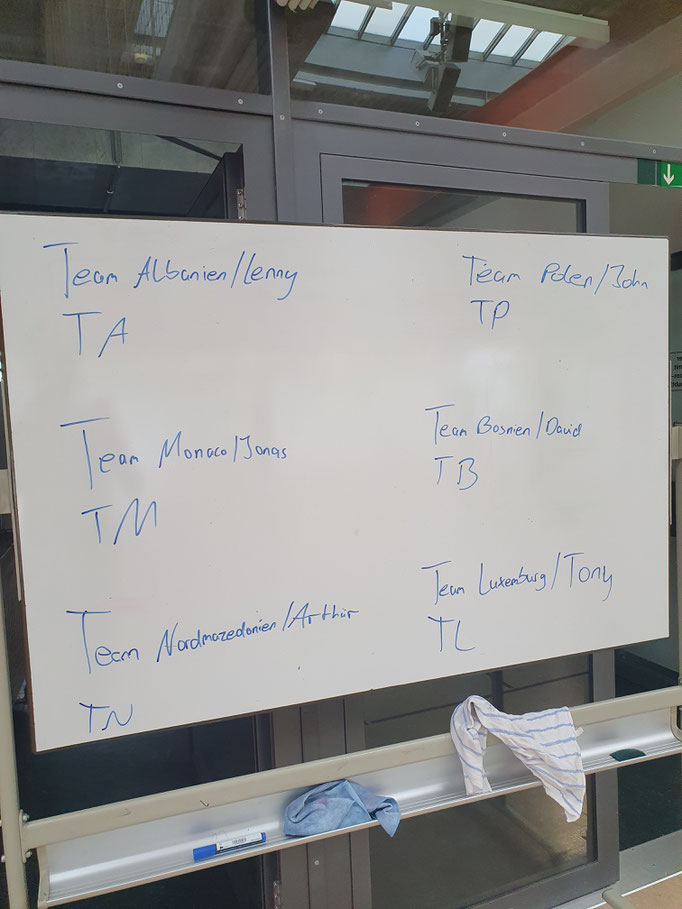 Team Albanien/Lenny
TA
Team Monaco/Jonas
TM
Team Nordmazedonien/Arthur
TN
Team Polen/John
TP
Team Bosnien/David
TB
Team Luxemburg/Tony
TL